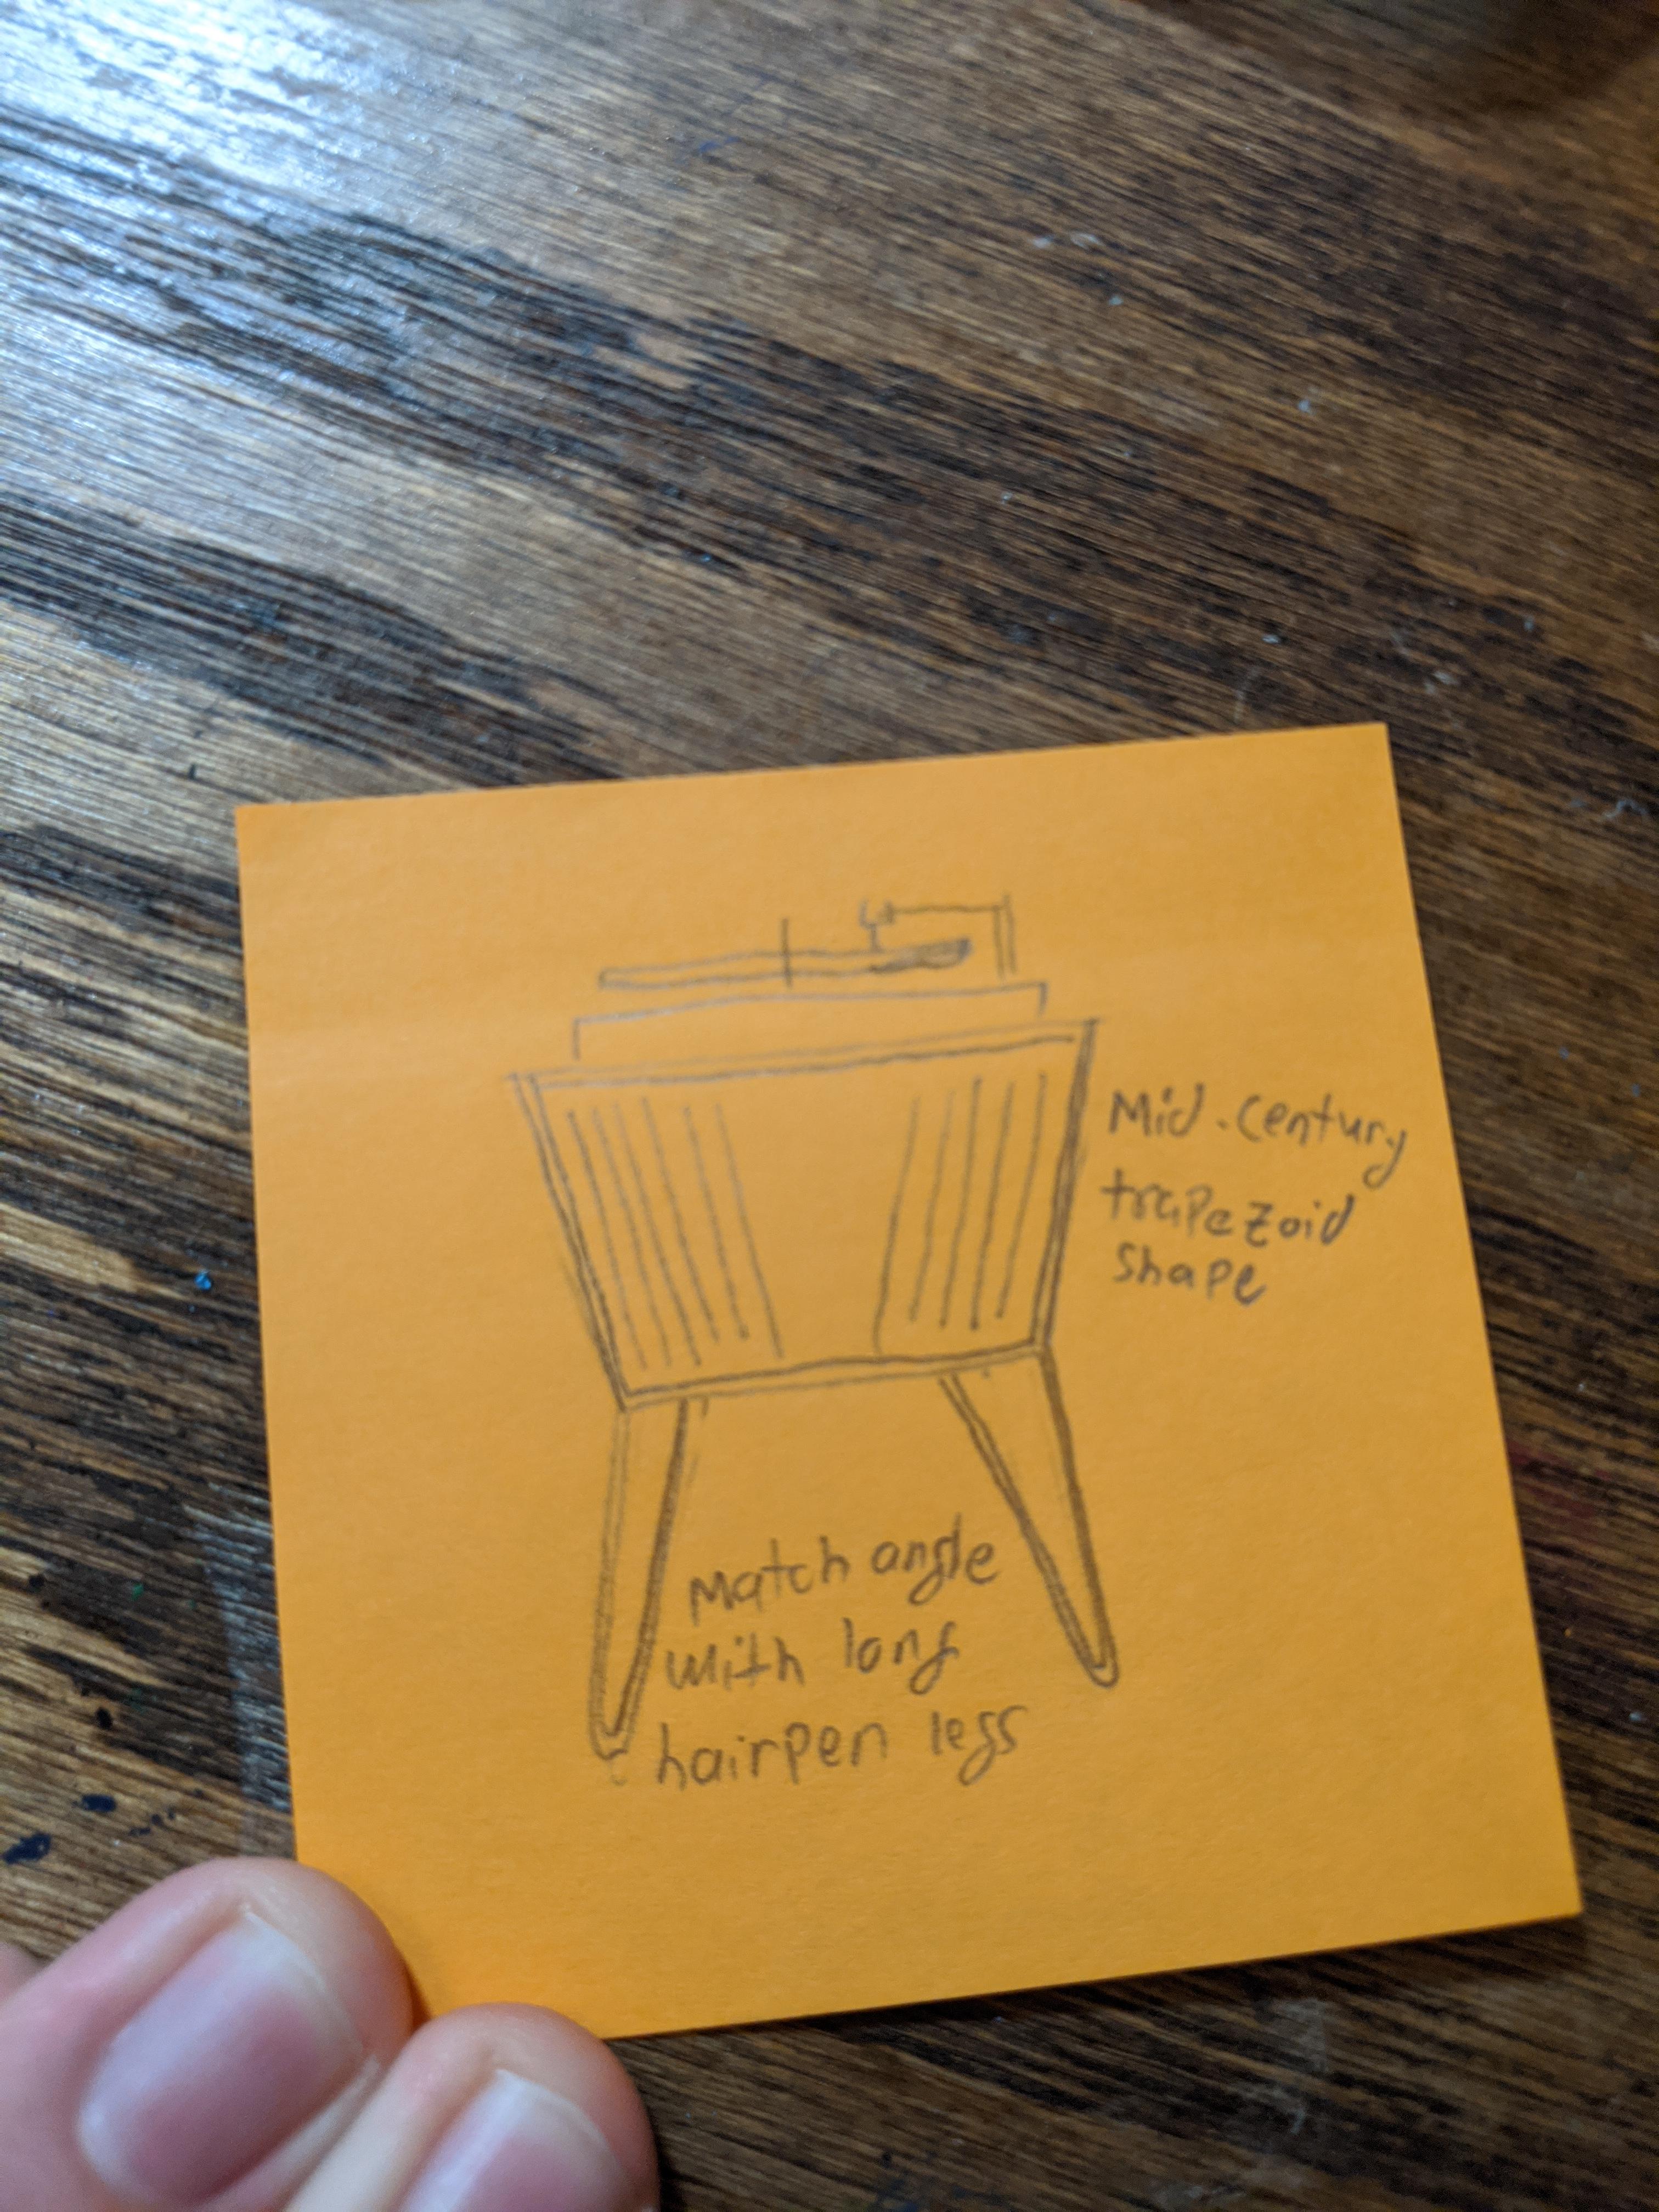 Mid-Century
trapezoid
shape
Match angle
with long
hairpen legs